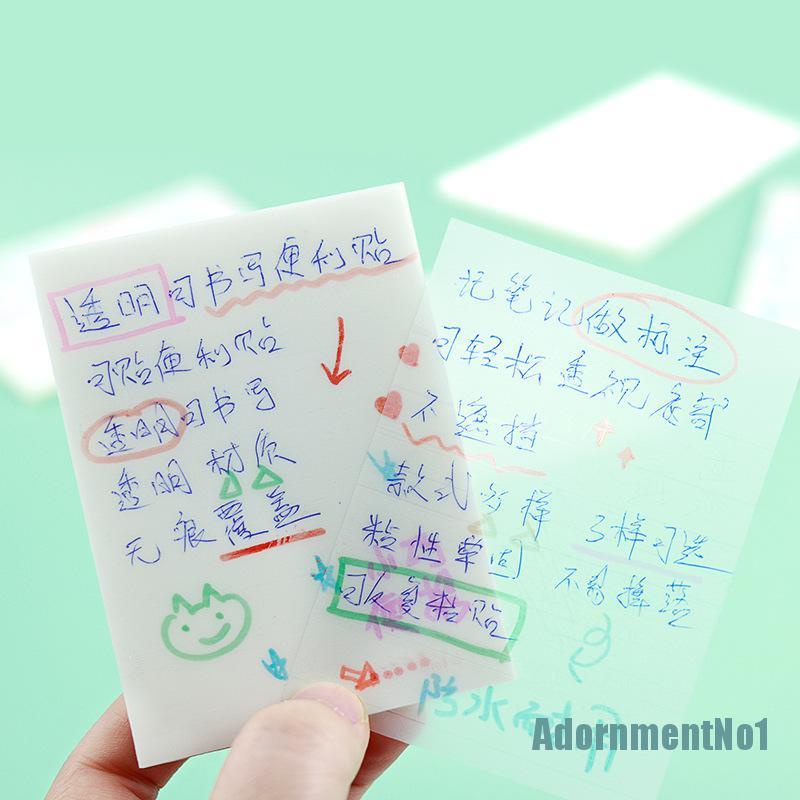 透明可书写便利贴
可贴便利贴
透明可书写
透明 材质
无痕覆盖
记笔记做标注
可轻松透视底部
不遮挡
款式多样 多样可选
粘性牢固 不易掉落
可反复粘贴
防水而
AdornmentNo1